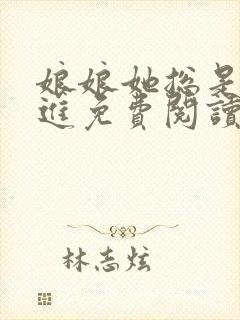 娘娘她總是
進免費閱讀
林志炫